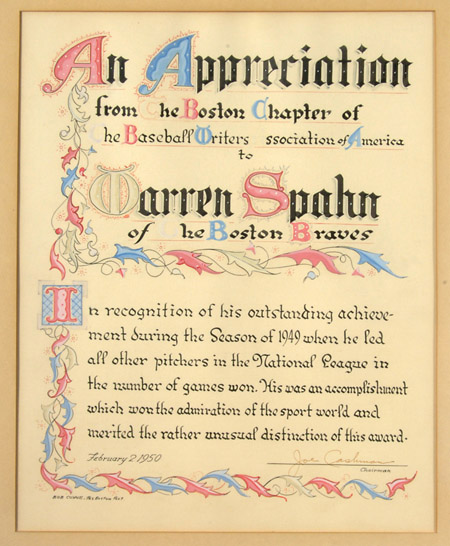 An Appreciation
from The Boston Chapter of
The Baseball Writers Association of America
to
Warren Spahn
of The Boston Braves
In recognition of his outstanding achieve-
ment during the Season of 1949 when he led
all other pitchers in the National League in
the number of games won. His was an accomplishment
which won the admiration of the sport world and
merited the rather unusual distinction of this award.
February 2 1950 Joe Cashman
Chairman